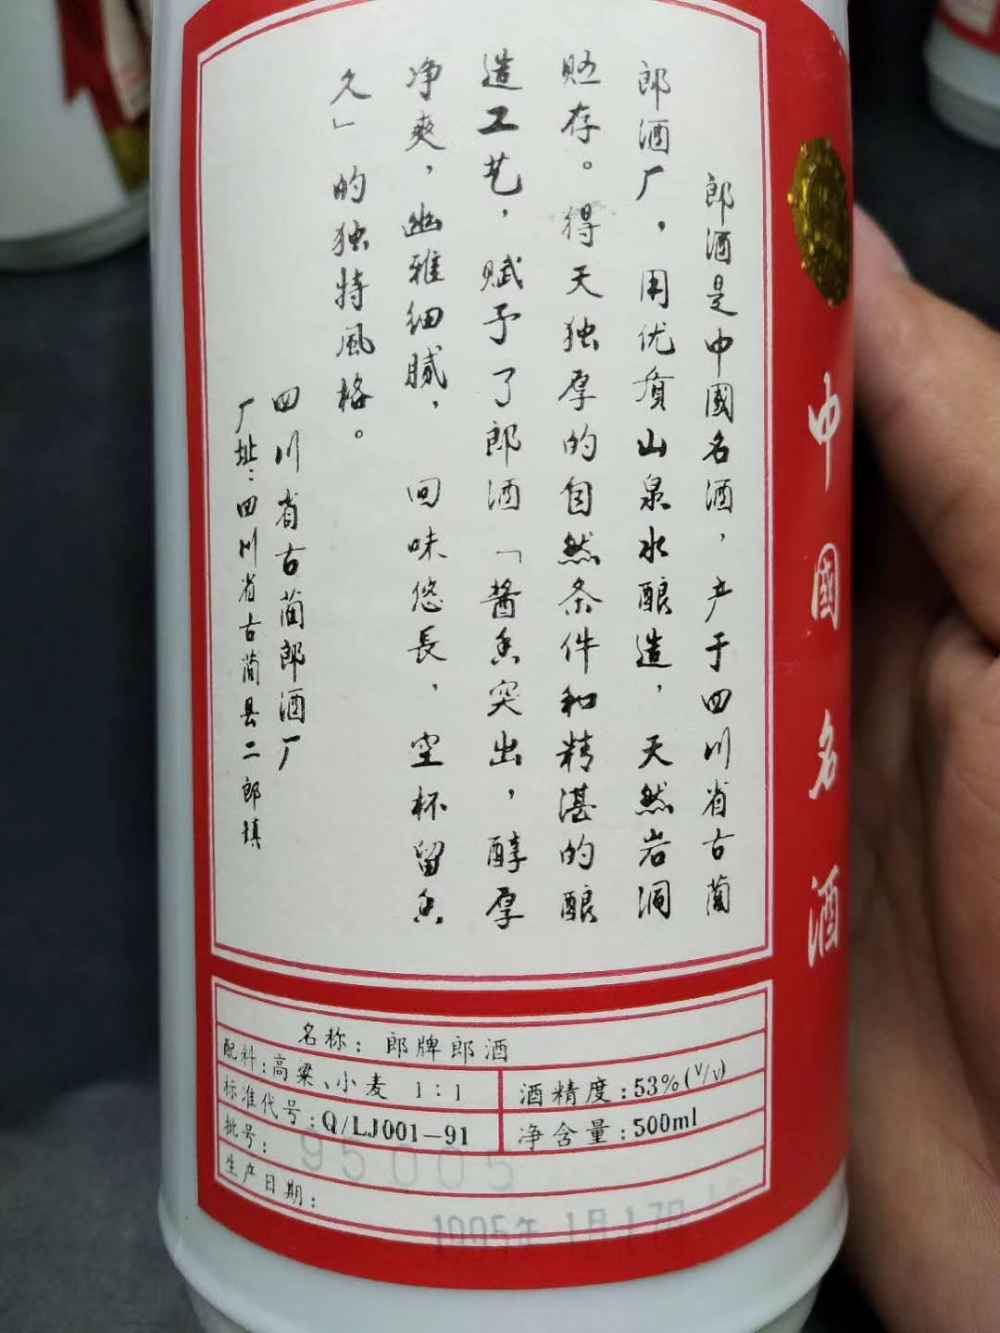 郎酒是中國名酒，产于四川省古蔺
郎酒厂，用优质山泉水酿造，天然岩洞
贮存。得天独厚的自然条件和精湛的酿
造工艺，赋予了郎酒「酱香突出，醇厚
净爽，幽雅细腻，回味悠長，空杯留香
久」的独特風格。
四川省古蔺郎酒厂
厂址：四川省古蔺县二郎镇
中國名酒
名称：郎牌郎酒
配料：高粱、小麦 1:1
酒精度：53%(V/V)
标准代号：Q/LJ001-91
净含量：500ml
批号：95005
生产日期：1995年1月17日